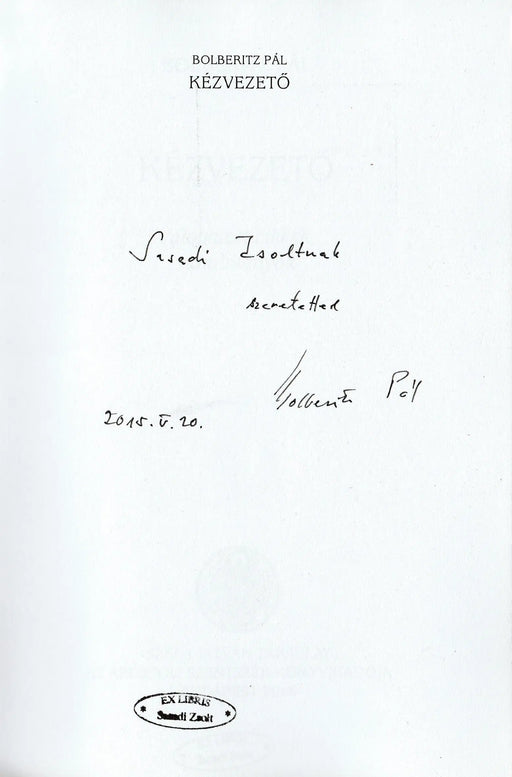 BOLBERITZ PÁL
KÉZVEZETŐ
KÉZVEZETŐ
Sasadi Zsoltnak
szeretettel
Bolberitz Pál
2015. V. 20.
EX LIBRIS
* Zsolt *